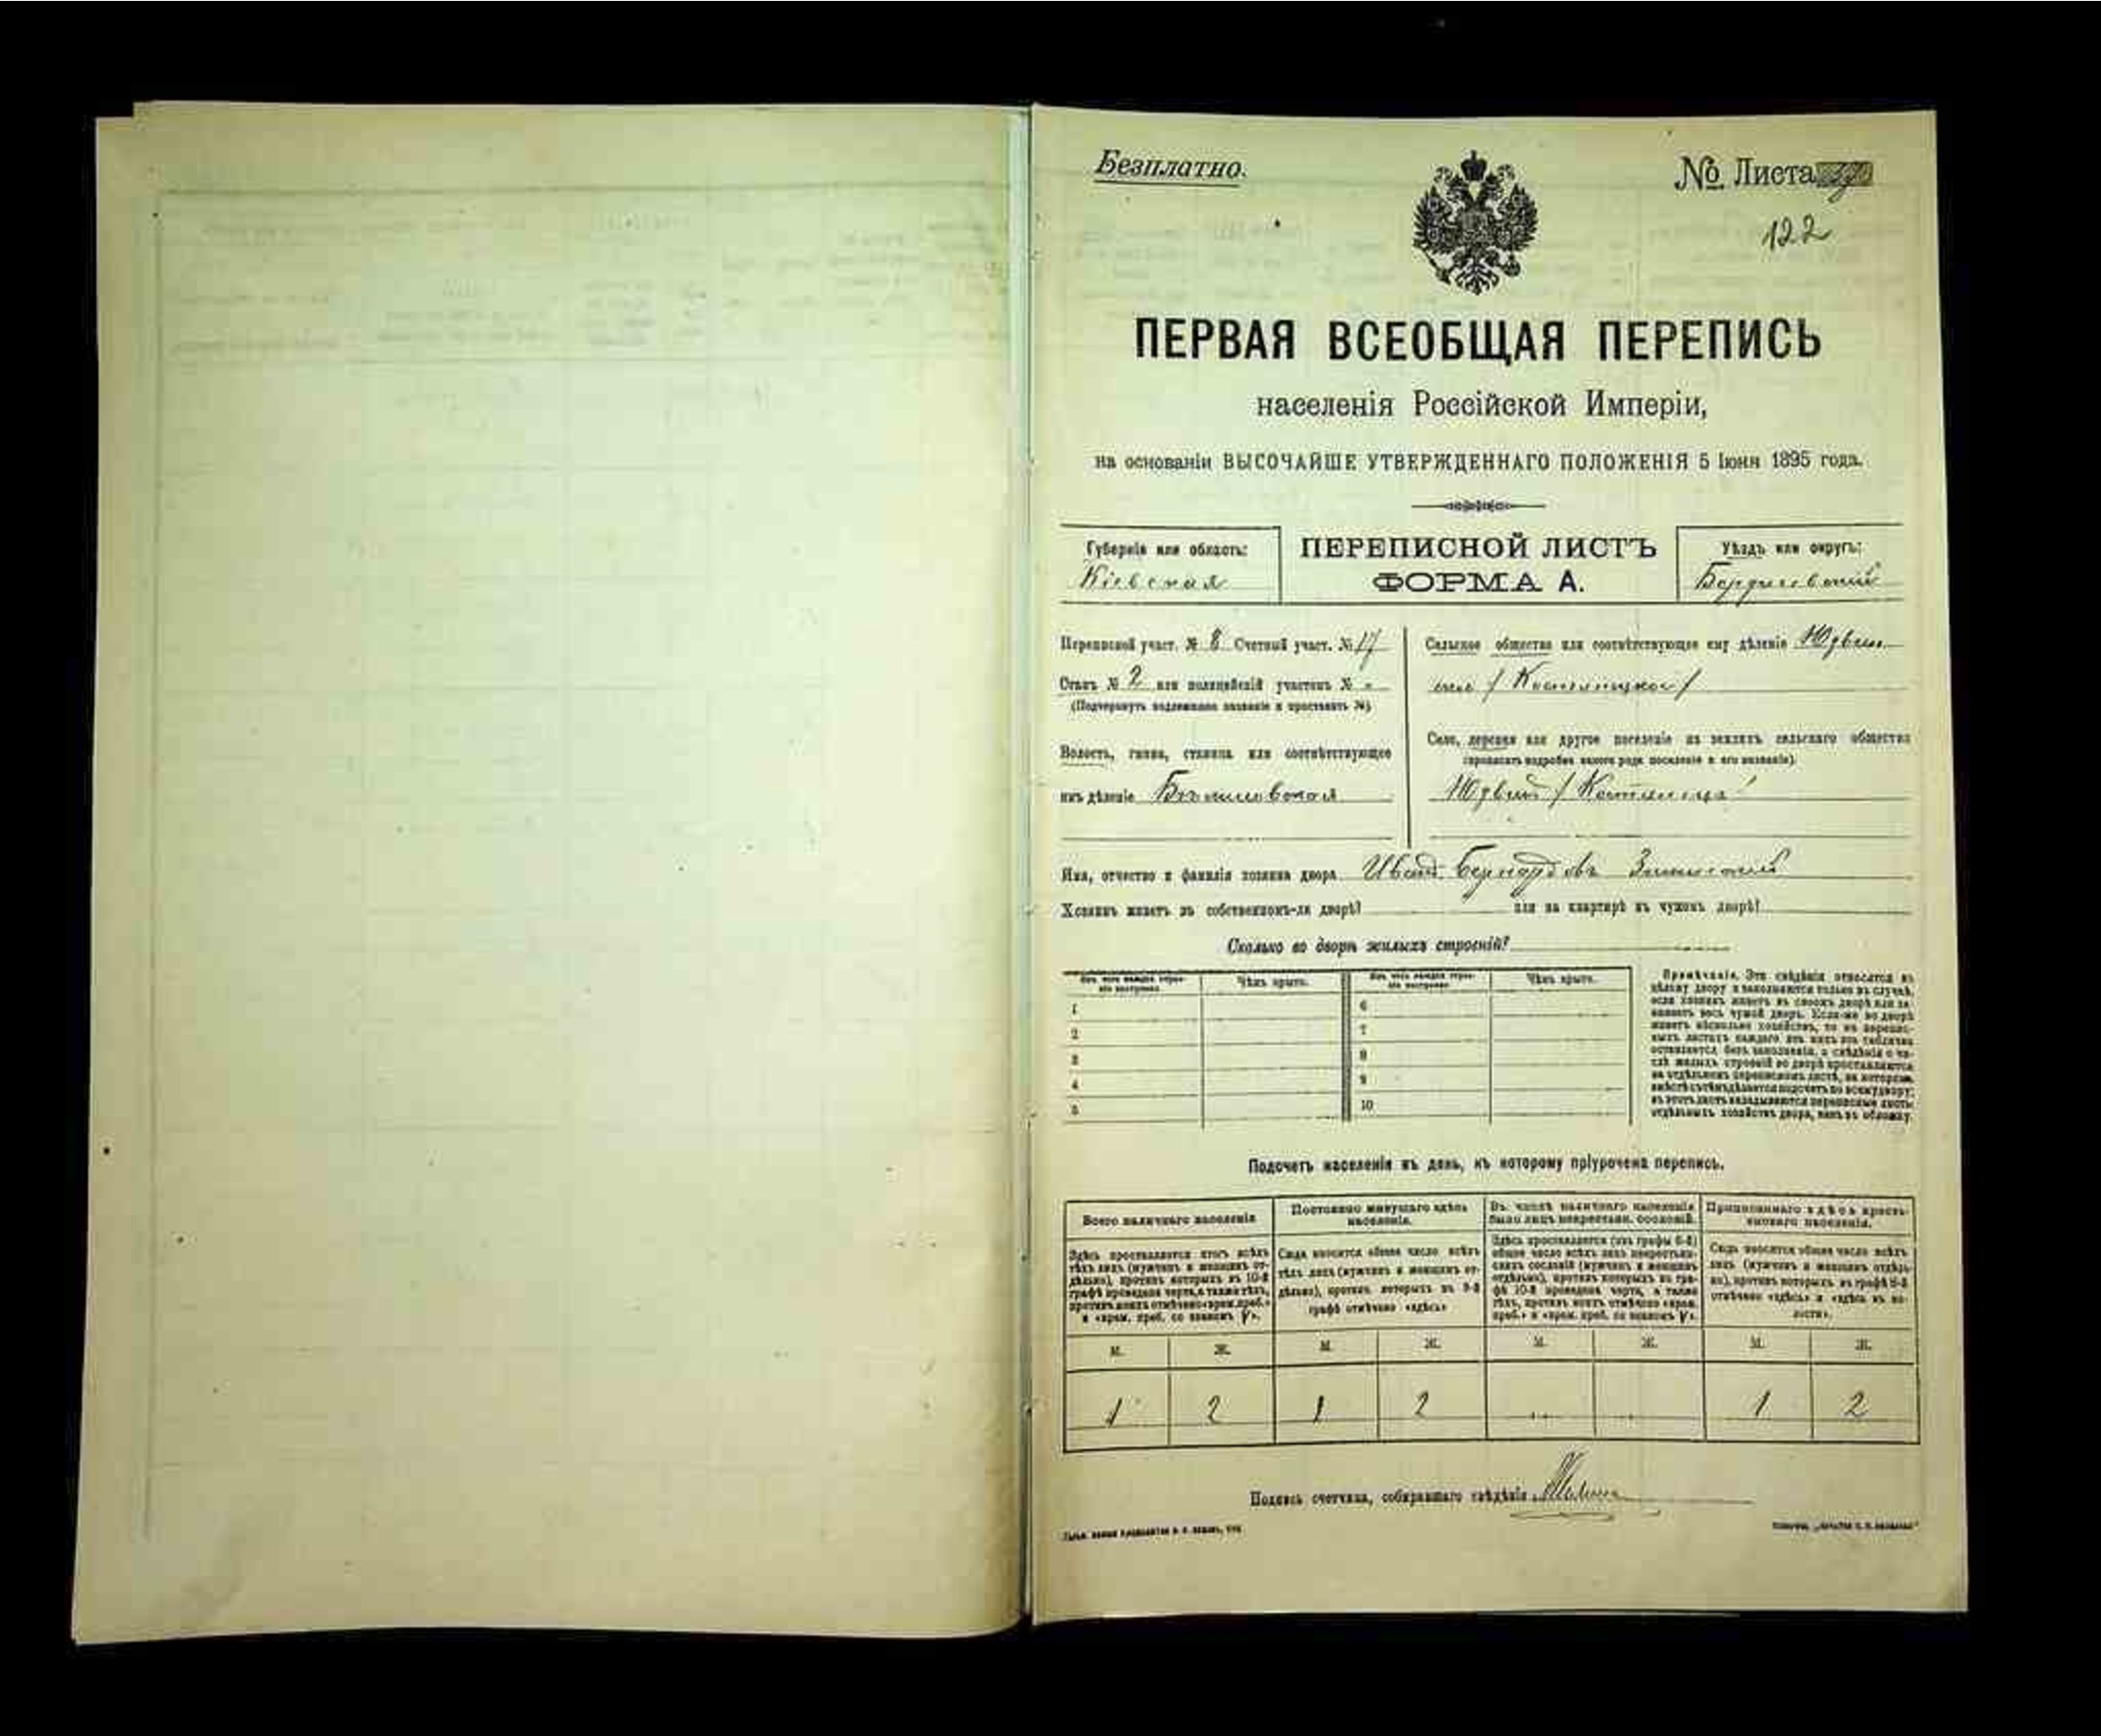 Безплатно.
№ Листа
122
ПЕРВАЯ ВСЕОБЩАЯ ПЕРЕПИСЬ
населенія Россійской Имперіи,
на основаніи ВЫСОЧАЙШЕ УТВЕРЖДЕННАГО ПОЛОЖЕНІЯ 5 Іюня 1895 года.
Губернія или область:
Кіевская
ПЕРЕПИСНОЙ ЛИСТЪ
ФОРМА А.
Уѣздъ или округъ:
Бердичевскій
Переписной участ. № 8 Счетный участ. № 17
Станъ № 2 или полицейскій участокъ № "
(Подчеркнуть надлежащее названіе и проставить №).
Волость, гмина, станица или соотвѣтствующее
имъ дѣленіе
Сельское общество или соотвѣтствующее ему дѣленіе
Село, деревня или другое поселеніе на земляхъ сельскаго общества
(прописать подробно какого рода поселеніе и его названіе).
Имя, отчество и фамилія хозяина двора Иванъ Бернардовъ
Хозяинъ живетъ въ собственномъ-ли дворѣ? или на квартирѣ въ чужомъ дворѣ?
Сколько во дворѣ жилыхъ строеній?
Изъ чего каждое строеніе построено. Чѣмъ крыто. Изъ чего каждое строеніе построено. Чѣмъ крыто.
1 6
2 7
3 8
4 9
5 10
Примѣчаніе. Эти свѣдѣнія относятся къ
цѣлому двору и заполняются только въ случаѣ,
если хозяинъ живетъ въ своемъ дворѣ или за-
нимаетъ весь чужой дворъ. Если-же во дворѣ
живетъ нѣсколько хозяйствъ, то въ перепис-
ныхъ листахъ каждаго изъ нихъ эта табличка
оставляется безъ заполненія, а свѣдѣнія о чи-
слѣ жилыхъ строеній во дворѣ проставляются
на отдѣльномъ переписномъ листѣ, на которомъ
вмѣстѣ съ тѣмъ дѣлается подсчетъ по всему двору;
въ этотъ листъ вкладываются переписные листы
отдѣльныхъ хозяйствъ двора, какъ въ обложку.
Подсчетъ населенія въ день, къ которому пріурочена перепись.
Всего наличнаго населенія
Здѣсь проставляется итогъ всѣхъ
тѣхъ лицъ (мужчинъ и женщинъ от-
дѣльно), противъ которыхъ въ 10-й
графѣ проведена черта, а также тѣхъ,
противъ коихъ отмѣчено «врем. преб.»
и «врем. преб. со знакомъ V».
Постоянно живущаго здѣсь
населенія.
Сюда вносится общее число всѣхъ
тѣхъ лицъ (мужчинъ и женщинъ от-
дѣльно), противъ которыхъ въ 9-й
графѣ отмѣчено «здѣсь»
Въ числѣ наличнаго населенія
было лицъ некрестьян. сословій.
Здѣсь проставляется (изъ графы 6-й)
общее число всѣхъ лицъ некрестьян-
скихъ сословій (мужчинъ и женщинъ
отдѣльно), противъ которыхъ въ гра-
фѣ 10-й проведена черта, а также
тѣхъ, противъ коихъ отмѣчено «врем.
преб.» и «врем. преб. со знакомъ V».
Приписаннаго здѣсь кресть-
янскаго населенія.
Сюда вносится общее число всѣхъ
лицъ (мужчинъ и женщинъ отдѣль-
но), противъ которыхъ въ графѣ 8-й
отмѣчено «здѣсь» и «здѣсь въ во-
лости».
М. Ж. М. Ж. М. Ж. М. Ж.
1 2 1 2 1 2
Подпись счетчика, собиравшаго свѣдѣнія